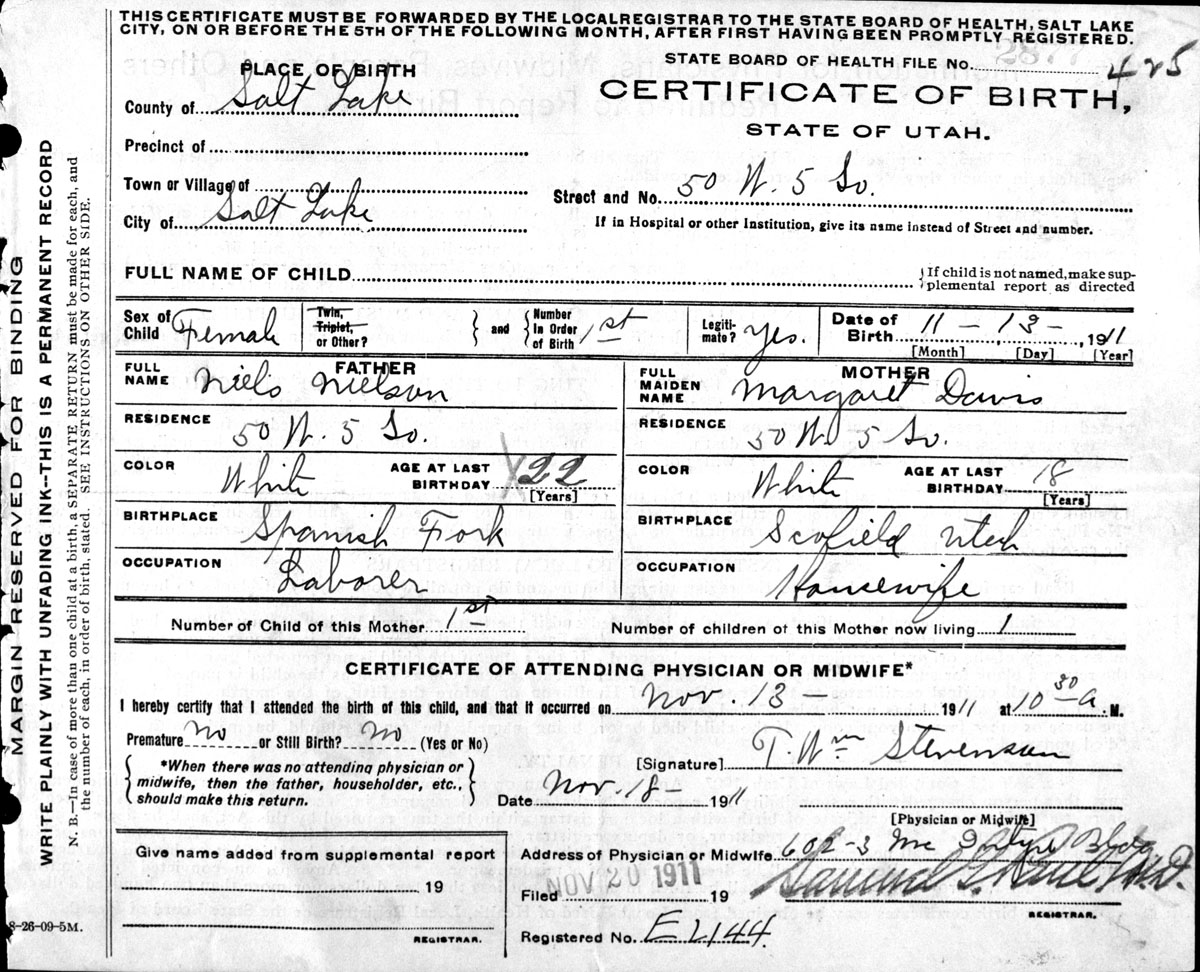 THIS CERTIFICATE MUST BE FORWARDED BY THE LOCAL REGISTRAR TO THE STATE BOARD OF HEALTH, SALT LAKE
CITY, ON OR BEFORE THE 5TH OF THE FOLLOWING MONTH, AFTER FIRST HAVING BEEN PROMPTLY REGISTERED.
STATE BOARD OF HEALTH FILE NO. 425
2877
PLACE OF BIRTH
CERTIFICATE OF BIRTH,
STATE OF UTAH.
County of Salt Lake
Precinct of
Town or Village of
Street and No. 50 W. 5 So.
City of Salt Lake
If in Hospital or other Institution, give its name instead of Street and number.
FULL NAME OF CHILD
If child is not named, make sup-
plemental report as directed
Sex of Child Female
Twin, Triplet, or Other?
and
Number In Order of Birth 1st
Legiti-mate? Yes.
Date of Birth 11 - 13 - 1911
[Month] [Day] [Year]
FATHER
FULL NAME Niels Nielson
RESIDENCE 50 W. 5 So.
COLOR White AGE AT LAST BIRTHDAY 22 [Years]
BIRTHPLACE Spanish Fork
OCCUPATION Laborer
MOTHER
FULL MAIDEN NAME Margaret Davis
RESIDENCE 50 W. 5 So.
COLOR White AGE AT LAST BIRTHDAY 18 [Years]
BIRTHPLACE Scofield Utah
OCCUPATION Housewife
Number of Child of this Mother 1st Number of children of this Mother now living 1
CERTIFICATE OF ATTENDING PHYSICIAN OR MIDWIFE*
I hereby certify that I attended the birth of this child, and that it occurred on Nov. 13 - 1911 at 10 30 a. M.
Premature No or Still Birth? No (Yes or No)
[Signature] T. Wm Stevenson
*When there was no attending physician or
midwife, then the father, householder, etc.,
should make this return.
Date Nov. 18 - 1911
[Physician or Midwife]
Give name added from supplemental report
19
REGISTRAR.
Address of Physician or Midwife. 602-3 Mc Intyre Bldg
Filed NOV 20 1911 19
REGISTRAR.
Registered No. E L144
8-26-09-5M.
MARGIN RESERVED FOR BINDING
WRITE PLAINLY WITH UNFADING INK--THIS IS A PERMANENT RECORD
N. B.—In case of more than one child at a birth, a SEPARATE RETURN must be made for each, and
the number of each, in order of birth, stated. SEE INSTRUCTIONS ON OTHER SIDE.